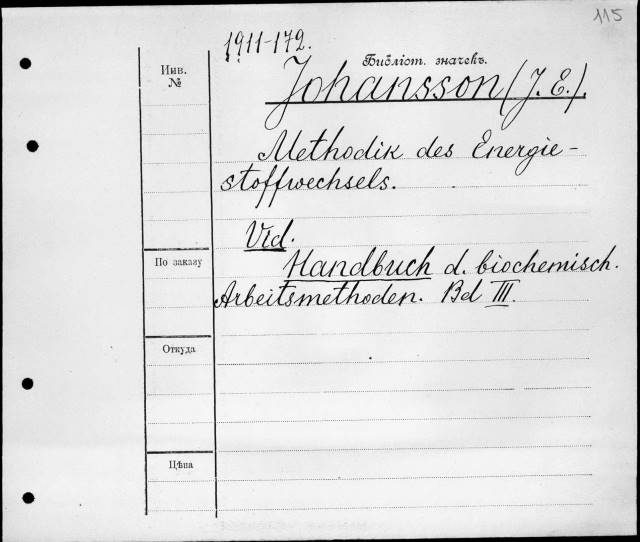 115
1911-172.
Библіот. значекъ.
Инв.
№
Johansson (J. E.).
Methodik des Energie-
stoffwechsels.
Vid.
По заказу
Handbuch d. biochemisch.
Arbeitsmethoden. Bd III.
Откуда
Цѣна